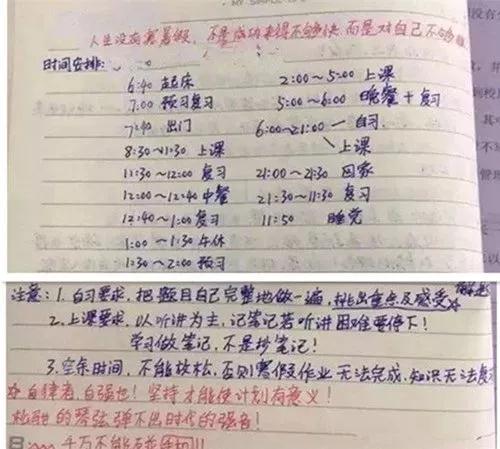 MY SIMPLE
人生没有寒暑假，不是成功来得不够快，而是对自己不够狠
时间安排：
6:40 起床
7:00 预习复习
7:40 出门
8:30～11:30 上课
11:30～12:00 复习
12:00～12:40 中餐
12:40～1:00 复习
1:00～1:30 午休
1:30～2:00 预习
2:00～5:00 上课
5:00～6:00 晚餐＋复习
6:00～21:00 一自习
上课
21:00～21:30 回家
21:30～11:30 复习
11:50 睡觉
注意：1. 自习要求，把题目自己完整地做一遍，挑出重点及感受
2. 上课要求，以听讲为主，记笔记若听讲困难要停下！
学习做笔记，不是抄笔记！
3. 空余时间，不能放松，否则寒假及作业无法完成，知识无法复
☆自律者，自强也！坚持才能使计划有意义！
松弛的琴弦弹不出时代的强音！
千万不能玩手机!!